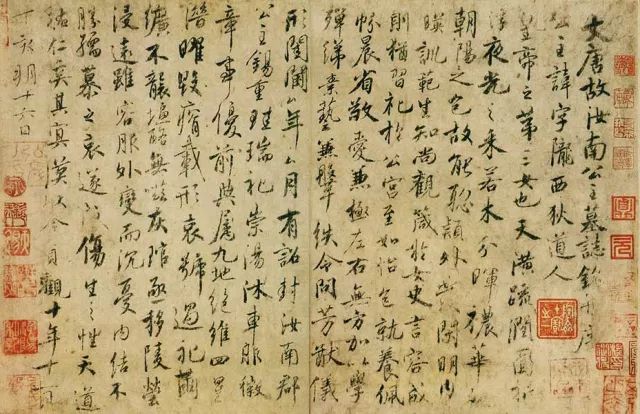 大唐故汝南公主墓誌銘并序
公主諱字隴西狄道人
皇帝之第三女也天潢疏潤圓折
浮夜光之采若木分暉穠華照
朝陽之色故能聰穎外發閑明內
暎訓範生知尚觀箴於女史言容成
則猶習礼於公宮至如怡色就養佩
帨晨省敬愛兼極左右無方加以學
殫綈素藝兼鞶紩令問芳猷儀
形閨閫年月有詔封汝南郡
公主錫重珪瑞礼崇湯沐車服徽
章事優前典屬九地絕維四星
潛曜毀瘠載形哀號過礼繭
纊不襲鹽酪無嗞灰琯亟移陵塋
浸遠雖容服外變而沉憂內結不
勝孺慕之哀遂成傷生之性天道
祐仁奚其冥漠以今貞觀十年十一月
丁亥朔十六日